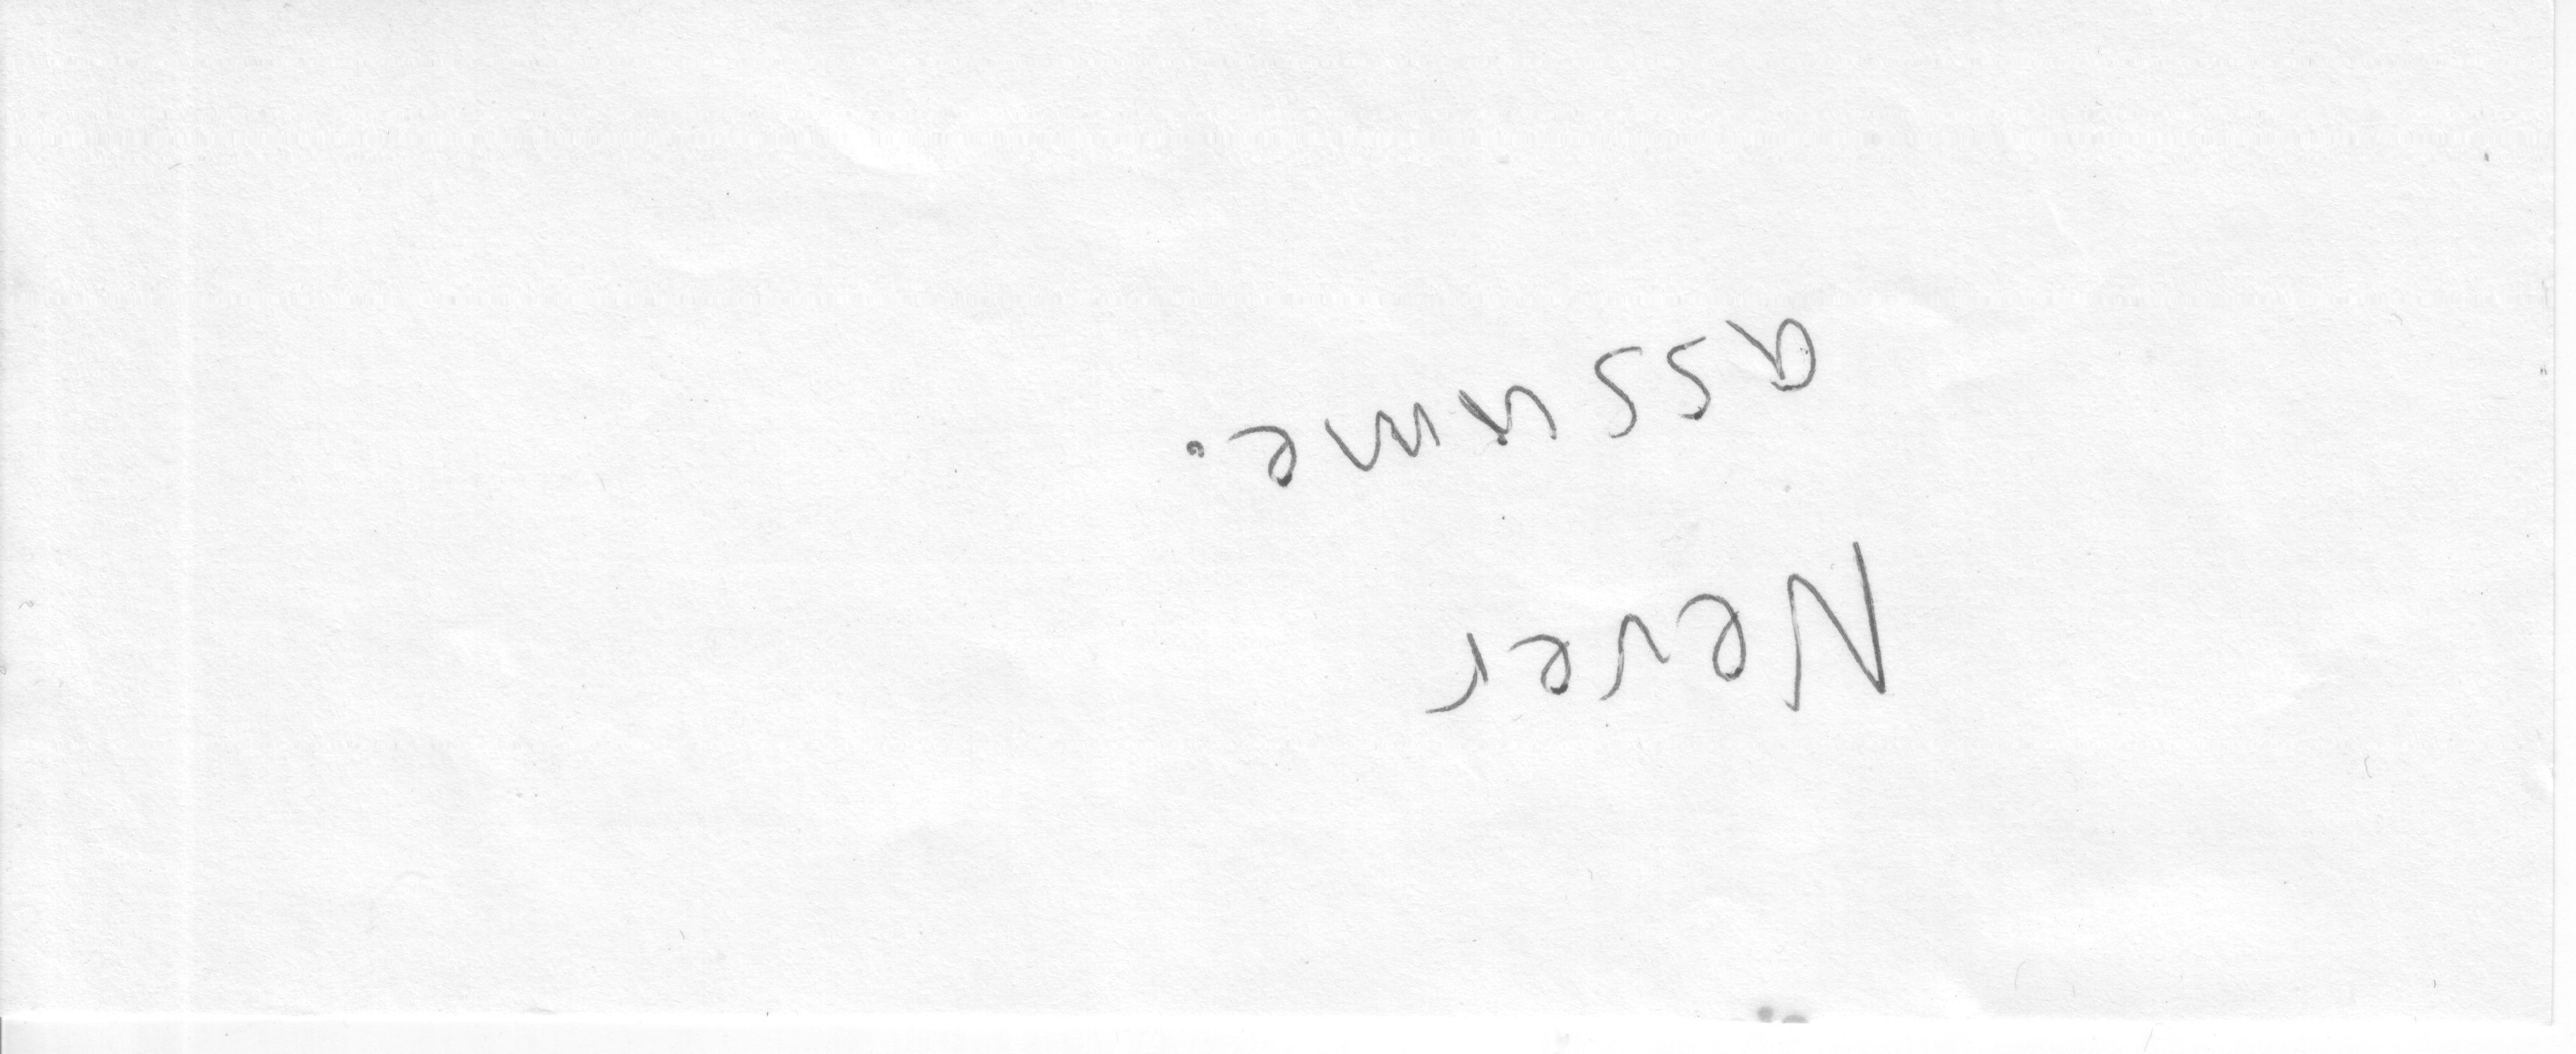 Never
assume.